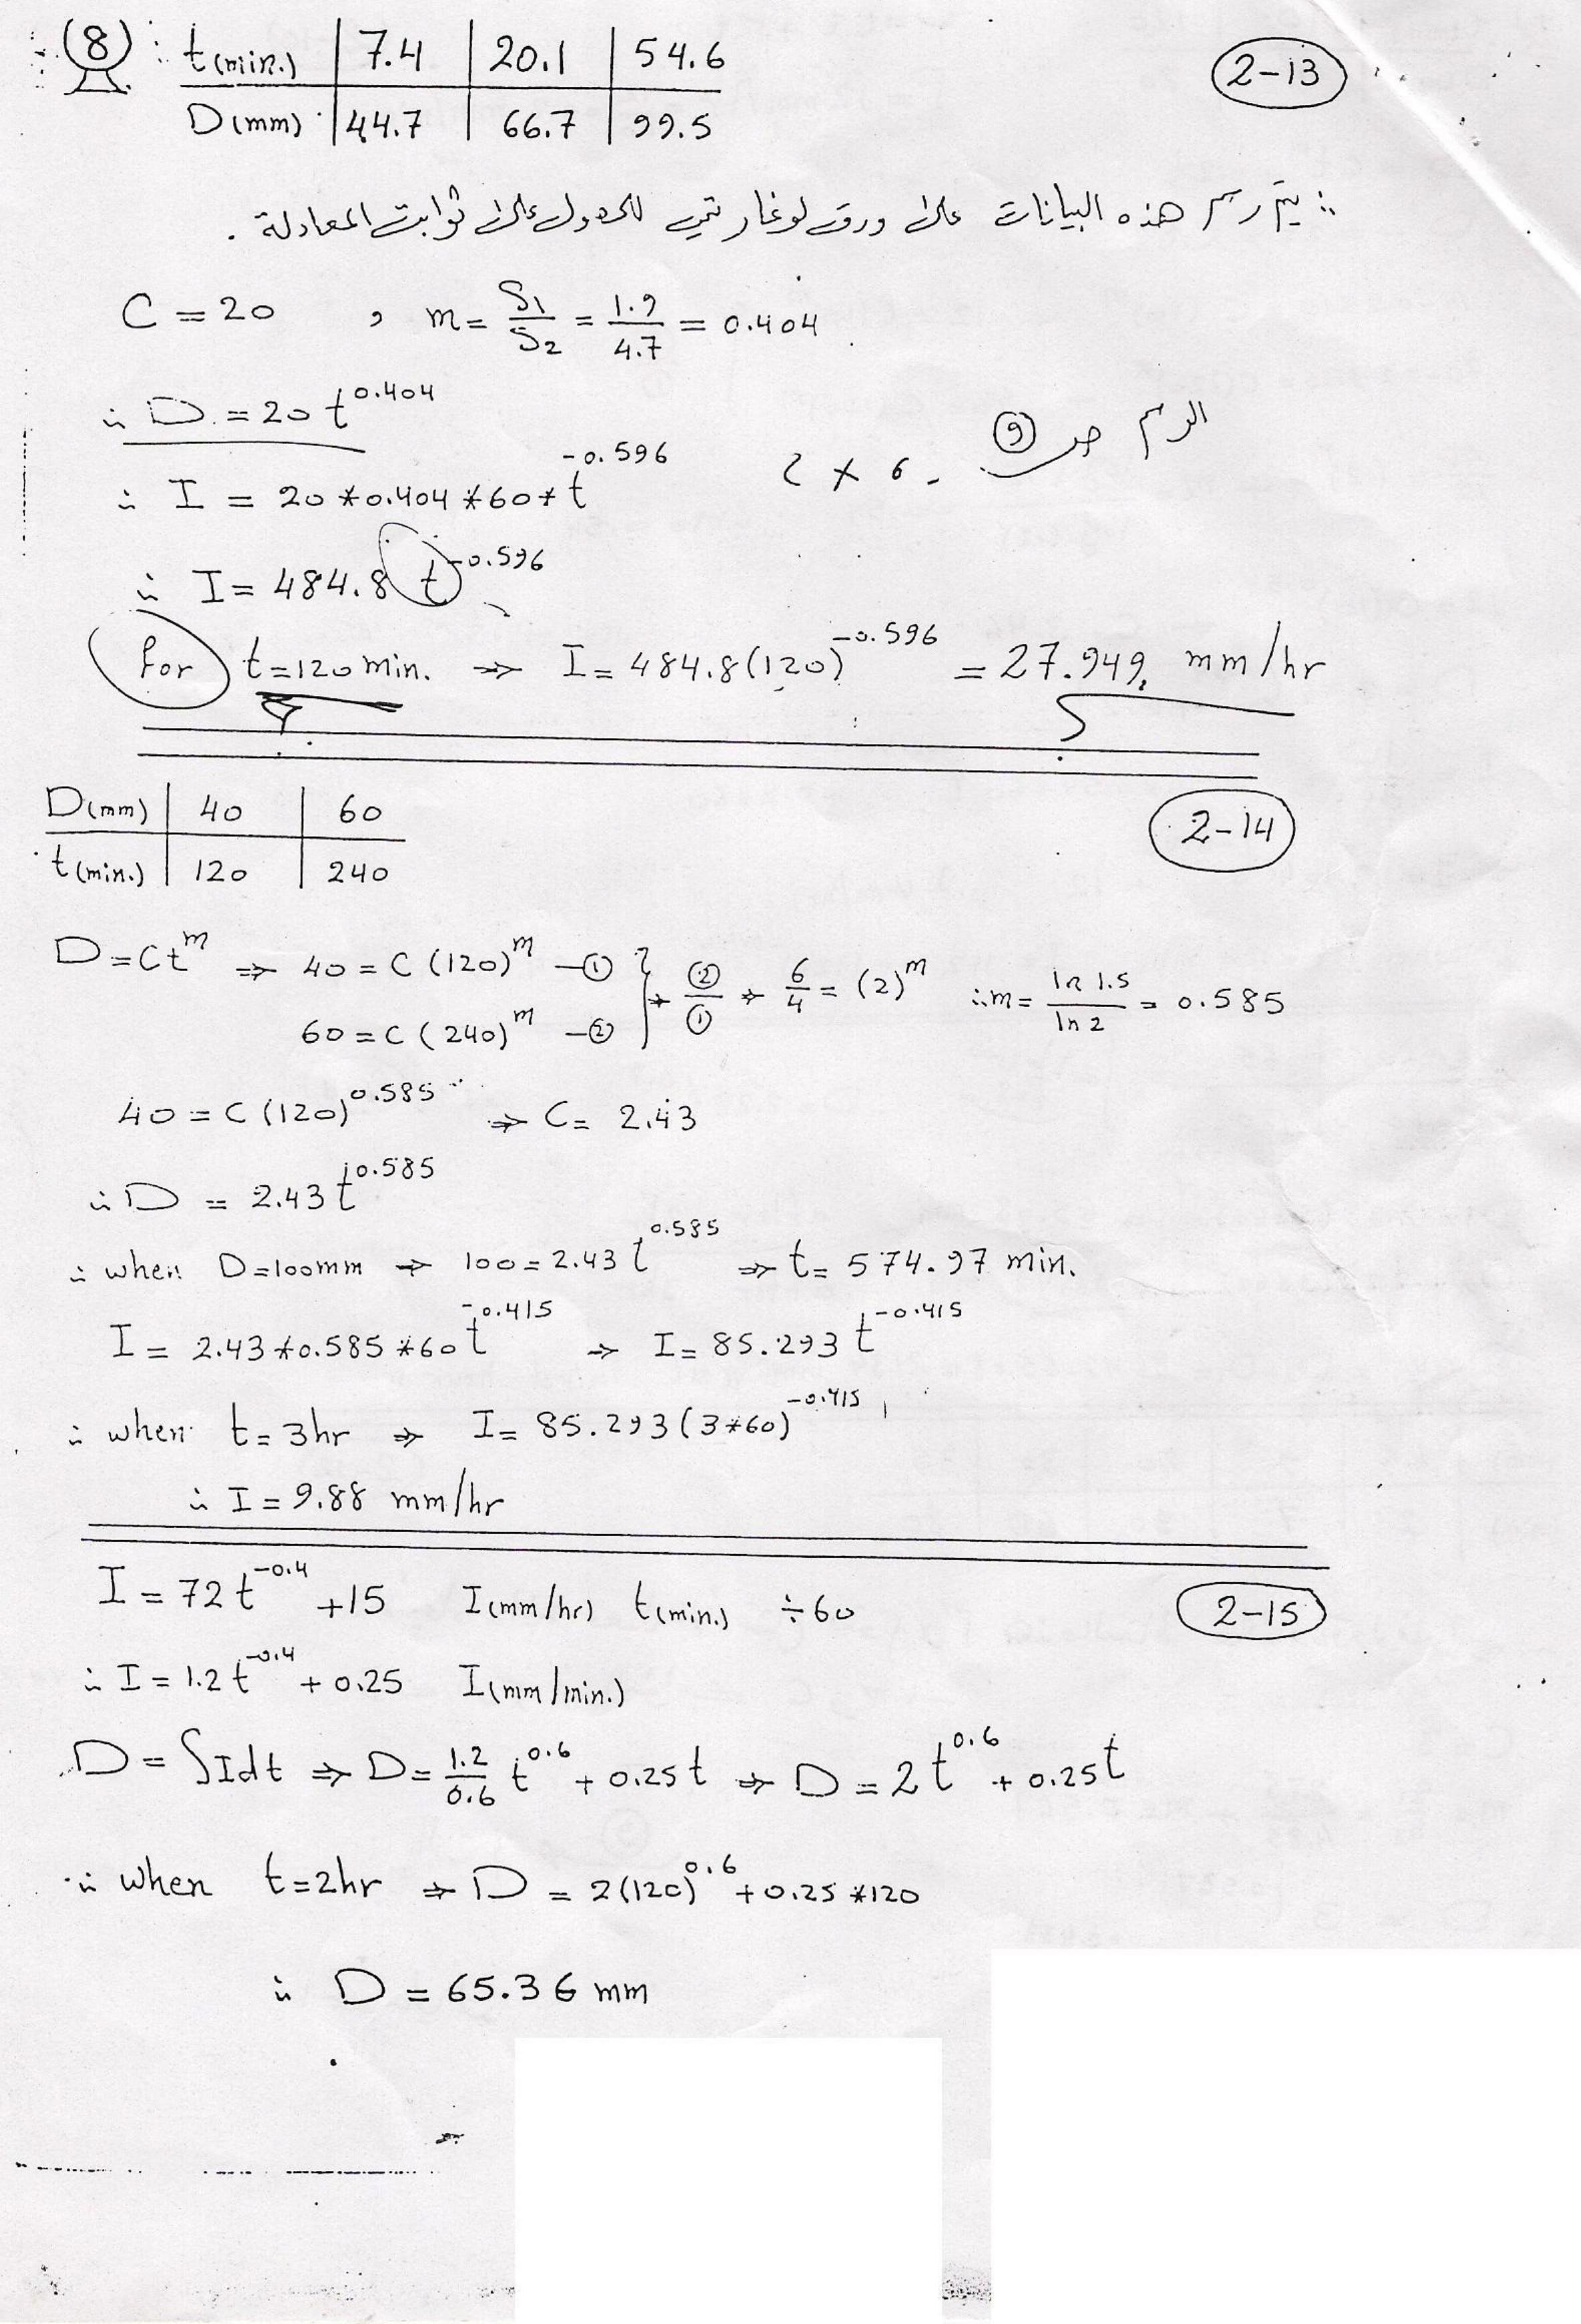 (8) t(min.) | 7.4 | 20.1 | 54.6
2-13
D(mm) | 44.7 | 66.7 | 99.5
∴ يتم رسم هذه البيانات على ورق لوغاريتمي للحصول على ثوابت المعادلة .
C = 20 , m = S1/S2 = 1.9/4.7 = 0.404
∴ D = 20 t^0.404
الرسم ص (9)
∴ I = 20 * 0.404 * 60 * t^-0.596
∴ I = 484.8 t^-0.596
for t = 120 min. ⇒ I = 484.8 (120)^-0.596 = 27.949 mm/hr
D(mm) | 40 | 60
2-14
t(min.) | 120 | 240
D = C t^m ⇒ 40 = C (120)^m —① } → ②/① → 6/4 = (2)^m ∴ m = ln 1.5/ln 2 = 0.585
60 = C (240)^m —②
40 = C (120)^0.585 ⇒ C = 2.43
∴ D = 2.43 t^0.585
∴ when D = 100mm → 100 = 2.43 t^0.585 ⇒ t = 574.97 min.
I = 2.43 * 0.585 * 60 t^-0.415 ⇒ I = 85.293 t^-0.415
∴ when t = 3hr ⇒ I = 85.293 (3*60)^-0.415
∴ I = 9.88 mm/hr
I = 72 t^-0.4 + 15 I(mm/hr) t(min.) ÷60
2-15
∴ I = 1.2 t^-0.4 + 0.25 I(mm/min.)
D = ∫Idt ⇒ D = 1.2/0.6 t^0.6 + 0.25t ⇒ D = 2 t^0.6 + 0.25t
∴ when t = 2hr ⇒ D = 2(120)^0.6 + 0.25 * 120
∴ D = 65.36 mm